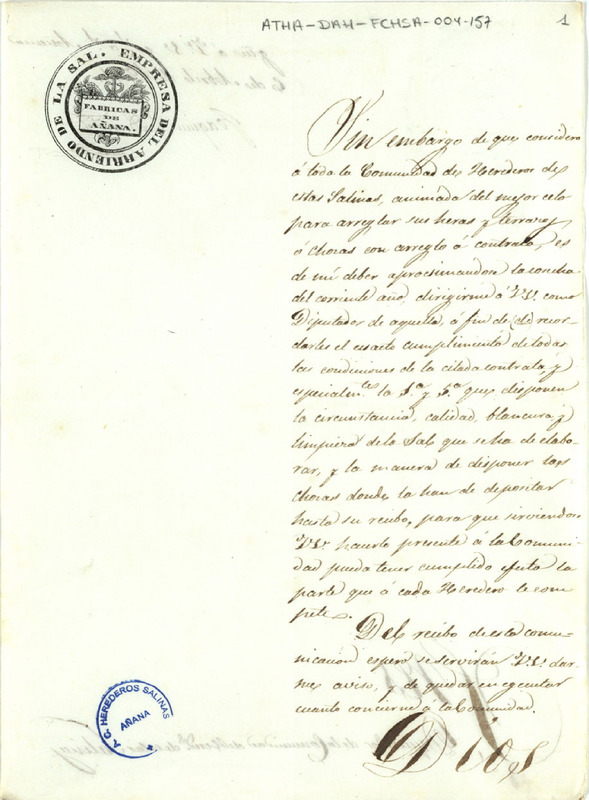 ATHA-DAH-FCHSA-004-157
1
EMPRESA DEL ARRIENDO DE LA SAL.
FABRICAS
DE
AÑANA.
Sin embargo de que considero
á toda la Comunidad de Herederos de
estas Salinas, animada del mejor celo
para arreglar sus heras y terrazos
ó choras con arreglo á contrata, es
de mi deber aprocsimandose la cosecha
del corriente año, dirigirme á VS. como
Diputados de aquella, á fin de recor-
darles el esacto cumplimiento de todas
las condiciones de la citada contrata, y
especialmte. la y 5.a que disponen
la circunstancia, calidad, blancura y
limpieza de la Sal que se ha de elabo-
rar, y la manera de disponer las
choras donde la han de depositar
hasta su recibo, para que sirviendose
VS. hacerlo presente á la Comuni-
dad pueda tener cumplido efecto la
parte que á cada Heredero le com-
pete.
Del recibo de esta comu-
nicacion espero se servirán VS. dar-
me aviso, y de quedar en egecutar
cuanto concierne á la Comunidad.
Dios
A. C. HEREDEROS SALINAS
AÑANA